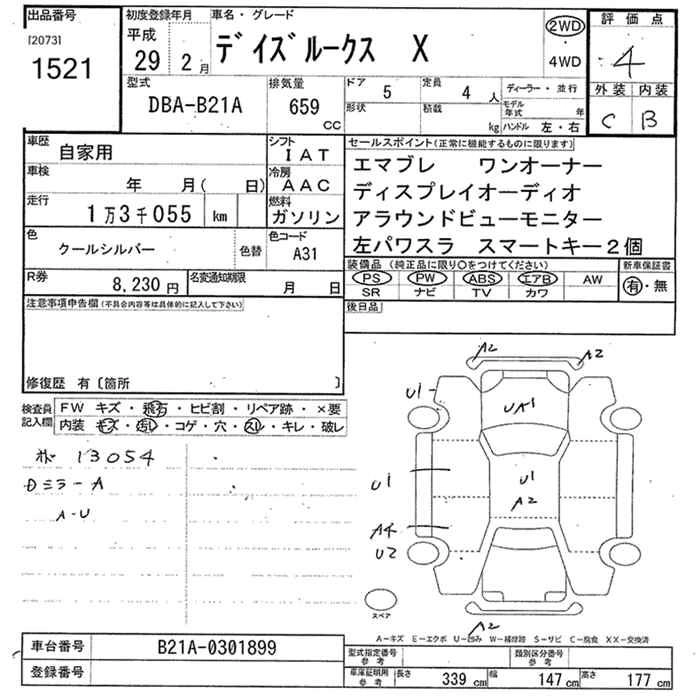 出品番号
[2073]
1521
初度登録年月
平成
29年 2月
車名・グレード
デイズルークス X
2WD
・
4WD
評価点
4
外装 内装
C B
型式
DBA-B21A
排気量
659
CC
ドア
5
定員
4人
形状
積載
kg
ディーラー・並行
モデル年式 年
ハンドル 左・右
車歴
自家用
シフト
IAT
車検
年 月( 日)
冷房
AAC
走行
1万3千055 km
燃料
ガソリン
色
クールシルバー
色替
色コード
A31
R券
8,230円
名変通知期限
月 日
セールスポイント(正常に機能するものに限ります)
エマブレ ワンオーナー
ディスプレイオーディオ
アラウンドビューモニター
左パワスラ スマートキー2個
装備品 (純正品に限り○をつけてください)
PS PW ABS エアB AW
SR ナビ TV カワ
新車保証書
有・無
後日品
注意事項申告欄(不具合内容等は具体的に記入して下さい)
修復歴 有〔箇所 〕
検査員
記入欄
FW キズ・飛石・ヒビ割・リペア跡・×要
内装 キズ・汚れ・コゲ・穴・スレ・キレ・破レ
13054
Dミラー A
A-U
A2
A2
U1
UA1
U1
U1
A2
A4
U2
A2
スペア
A-キズ E-エクボ U-凹み W-補修跡 S-サビ C-腐食 XX-交換済
車台番号
B21A-0301899
登録番号
型式指定番号
参考
類別区分番号
参考
車庫証明用
参考
長さ 339cm 幅 147cm 高さ 177cm